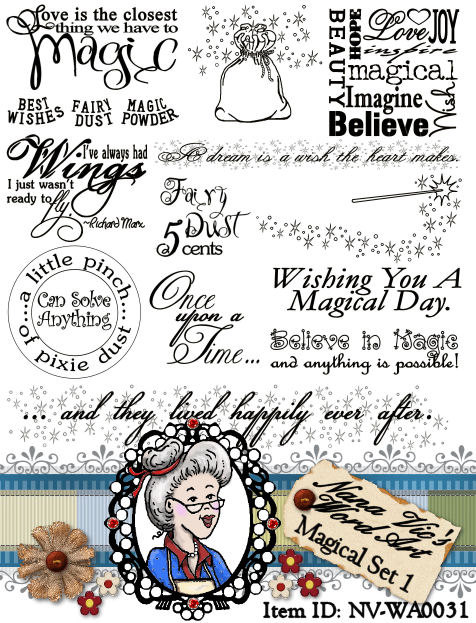 Love is the closest
thing we have to
Magic
BEST WISHES
FAIRY DUST
MAGIC POWDER
BEAUTY
HOPE
Love
JOY
inspire
magical
Imagine
Wish
Believe
I've always had
Wings
I just wasn't
ready to fly.
~Richard Marx
A dream is a wish the heart makes.
Fairy
Dust
5 cents
a little pinch...
Can Solve
Anything
...of pixie dust...
Once
upon a
Time...
Wishing You A
Magical Day.
Believe in Magic
and anything is possible!
... and they lived happily ever after.
Nana Vic's
Word Art
Magical Set 1
Item ID: NV-WA0031